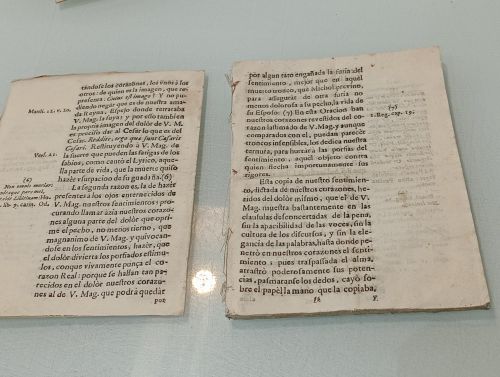 Matth. 22. v. 20.
Vers. 21.
(6)
Non omnis moriar:
lib. 3. carm. Od.
tándose los corazones, los vnos à los
otros: de quien es la imagen, que re-
presenta: Cuius est imago? Y no pu-
diendo negar que es de nuestra ama-
da Reyna, Espejo donde retrataba
V. Mag. la suya; y por ello tambien
la propia imagen del dolòr de V. M.
es preciso dar al Cesar lo que es del
Cesar. Reddite, ergo quæ sunt Cæsaris
Cæsari. Restituyendo à V. Mag. de
la suerte que pueden las fatigas de los
sabios; como cantò el Lyrico, aque-
lla parte de vida, que la muerte quiso
hazèr vsurpacion de su guadaña (6)
La segunda razon es, la de hazèr
presentes à los ojos enternecidos de
V. Mag. nuestros sentimientos; pro-
curando llamar àzia nuestros corazo-
nes alguna parte del dolor que opri-
me el pecho, no menos tierno, que
magnanimo de V. Mag. y quivocan-
dose en los sentimientos; hazèr, que
el dolor divierta los porfiados estimu-
los, conque vivamente punça el co-
razon Real: porque se hallan tan pa-
recidos en el dolòr nuestros corazo-
nes al de V. Mag. que podrà quedàr
por
por algun rato engañada la furia del
sentimiento, mejor que en aquèl
muerto tronco, que Michol previno,
para assegurar de otra furia no
menos dolorosa à su pecho, la vida de
su Esposo: (7) En esta Oracion ban
nuestros corazones revestidos del co-
razon lastimado de V. Mag. y aunque
comparados con el, puedan parecèr
troncos insensibles, los dedica nuestra
ternura, para hurtàr à las porfias del
sentimiento, aquèl objeto contra
quien flecha importunamente sus
rigores.
Esta copia de nuestro sentimien-
to, dictada de nuestros corazones, he-
ridos del dolor mismo, que el de V.
Mag. muestra bastantemente en las
clausulas desconcertadas de la pena,
sin la apacibilidad de las voces, sin la
cultura de los discursos, y sin la ele-
gancia de las palabras, hasta donde pe-
netrò en nuestros corazones el senti-
miento; pues traspassada el alma,
atrastrò poderosamente sus poten-
cias, pasmaronse los dedos, cayò so-
bre el papèl la mano que la copiaba,
Y
(7)
1. Reg. cap. 19.